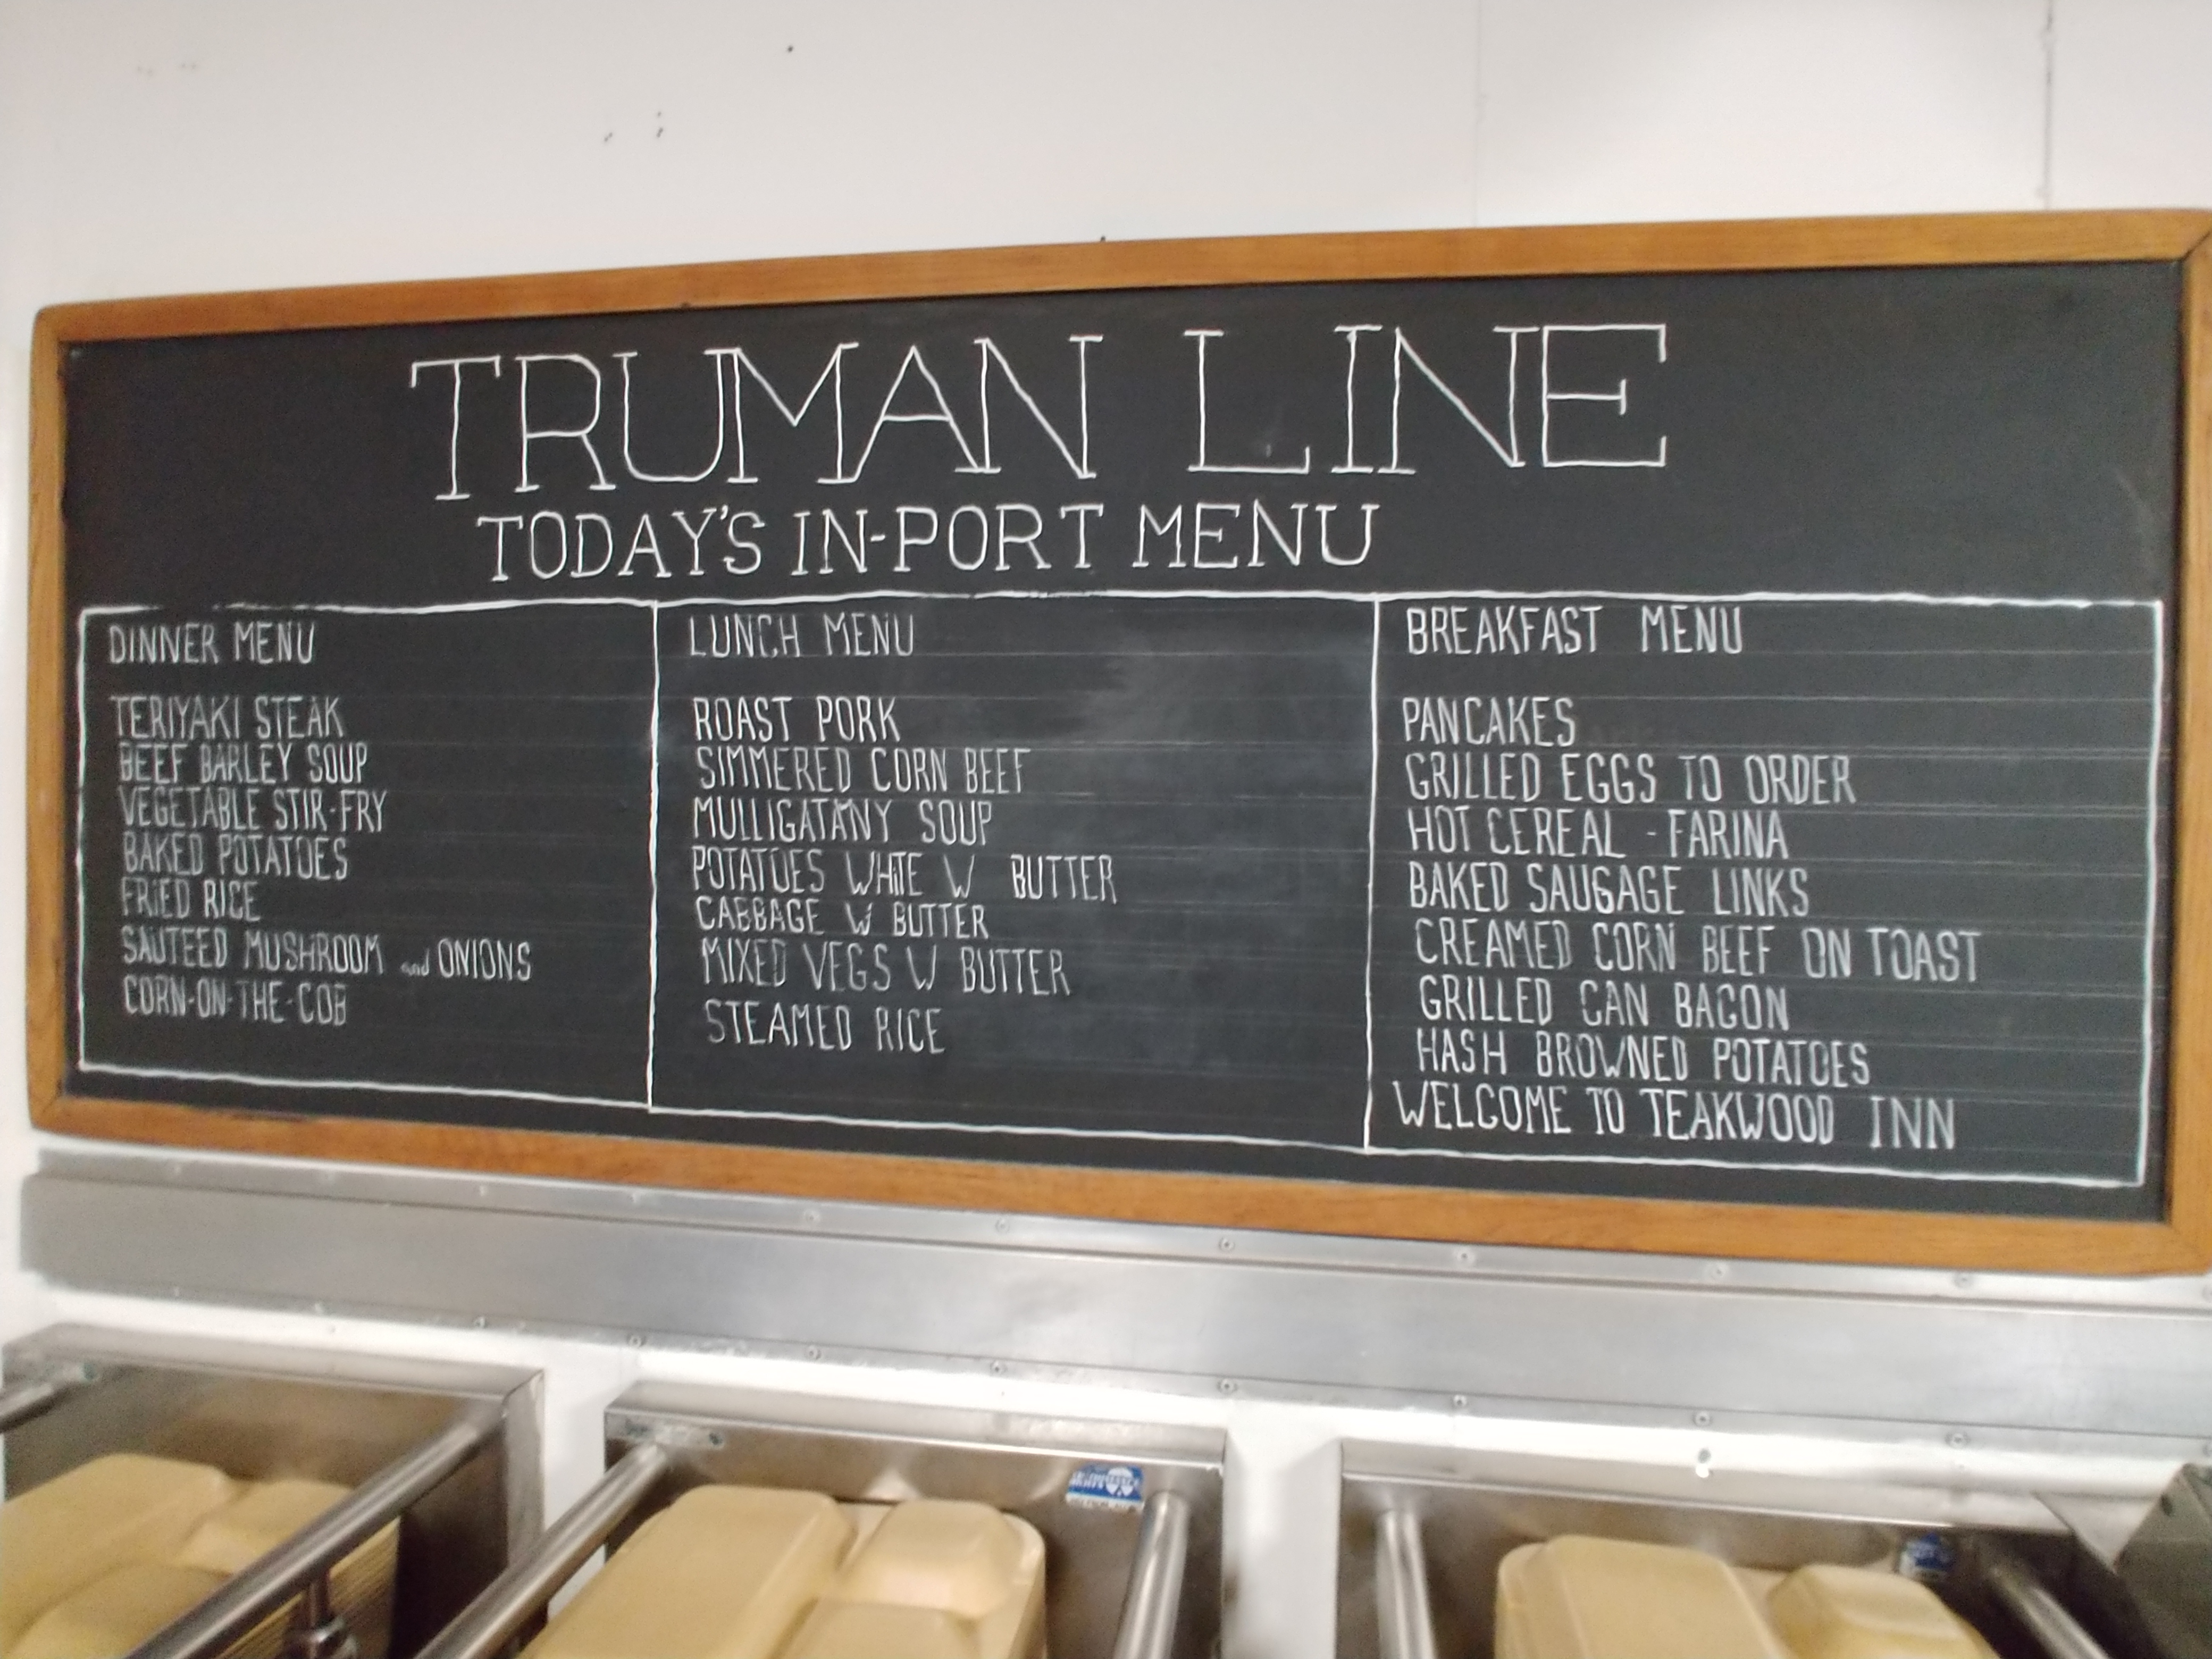 TRUMAN LINE
TODAY'S IN-PORT MENU
DINNER MENU
TERIYAKI STEAK
BEEF BARLEY SOUP
VEGETABLE STIR-FRY
BAKED POTATOES
FRIED RICE
SAUTEED MUSHROOM and ONIONS
CORN-ON-THE-COB
LUNCH MENU
ROAST PORK
SIMMERED CORN BEEF
MULLIGATANY SOUP
POTATOES WHITE W BUTTER
CABBAGE W BUTTER
MIXED VEGS W BUTTER
STEAMED RICE
BREAKFAST MENU
PANCAKES
GRILLED EGGS TO ORDER
HOT CEREAL - FARINA
BAKED SAUGAGE LINKS
CREAMED CORN BEEF ON TOAST
GRILLED CAN BACON
HASH BROWNED POTATOES
WELCOME TO TEAKWOOD INN